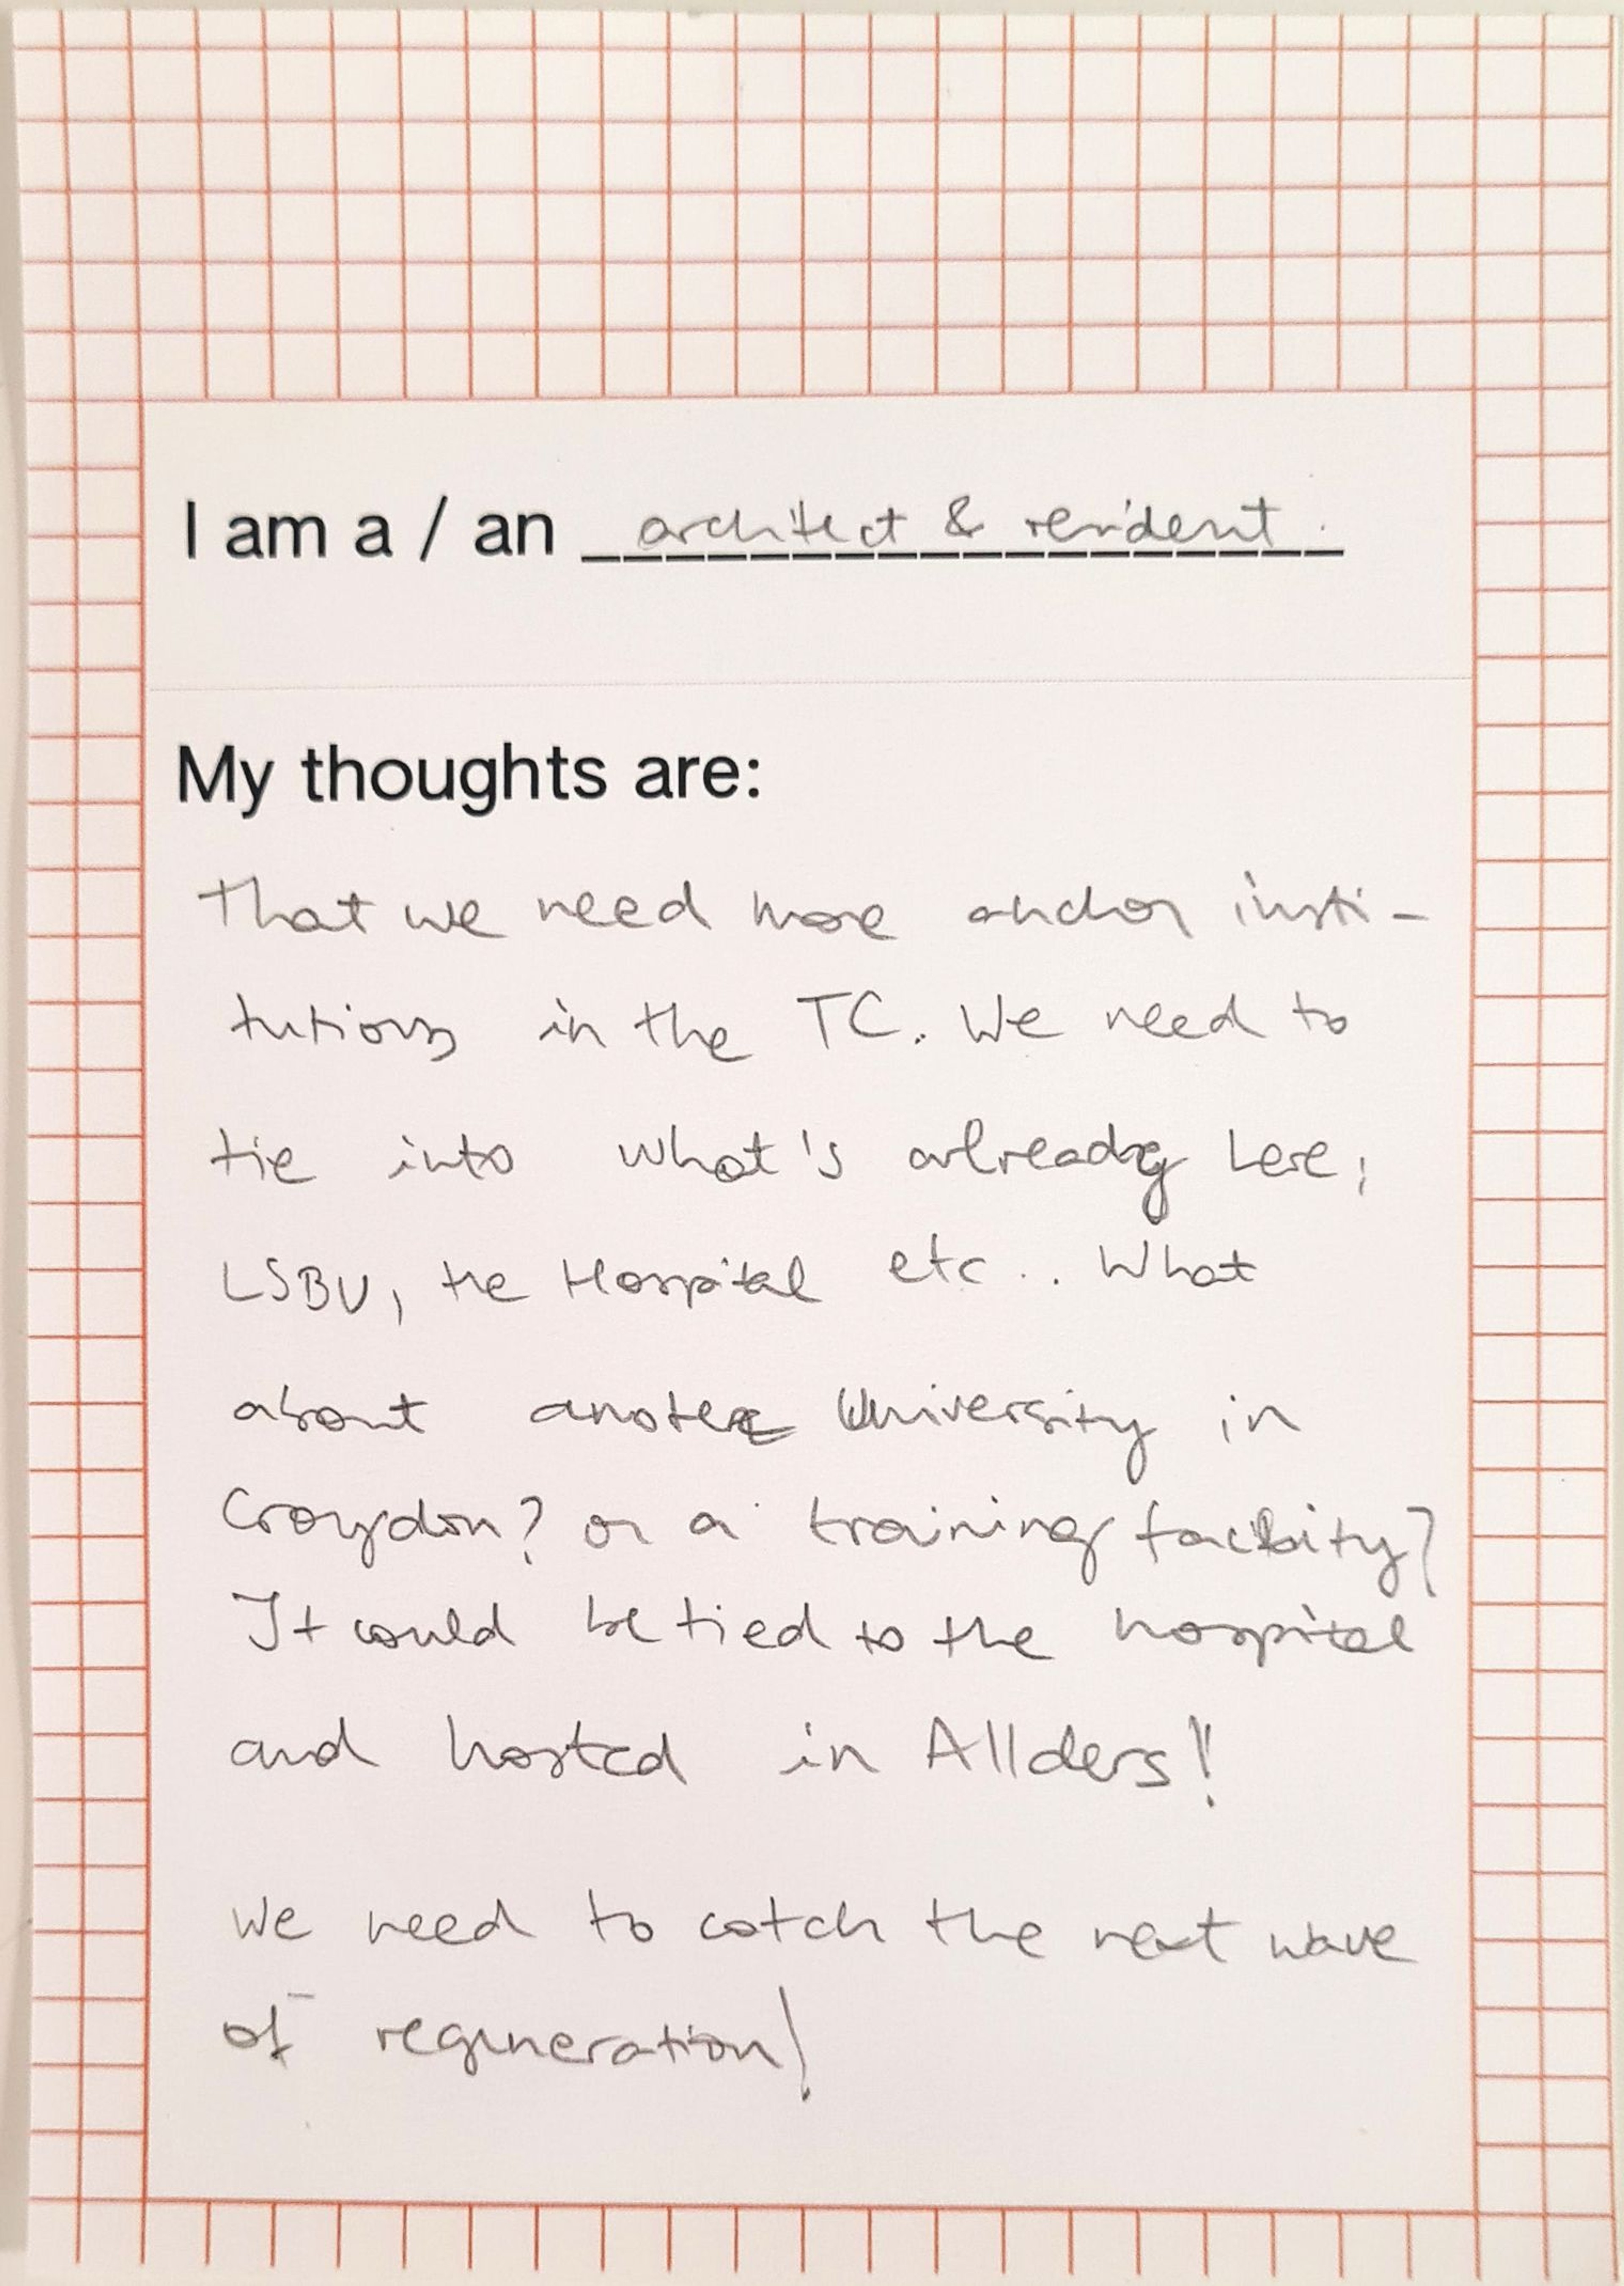 I am a / an architect & resident.
My thoughts are:
That we need more anchor insti-
tutions in the TC. We need to
tie into what's already here;
LSBU, the Hospital etc.. What
about anoter University in
Croydon? or a training facility?
It could be tied to the hospital
and hosted in Allders!!
We need to catch the next wave
of regeneration!